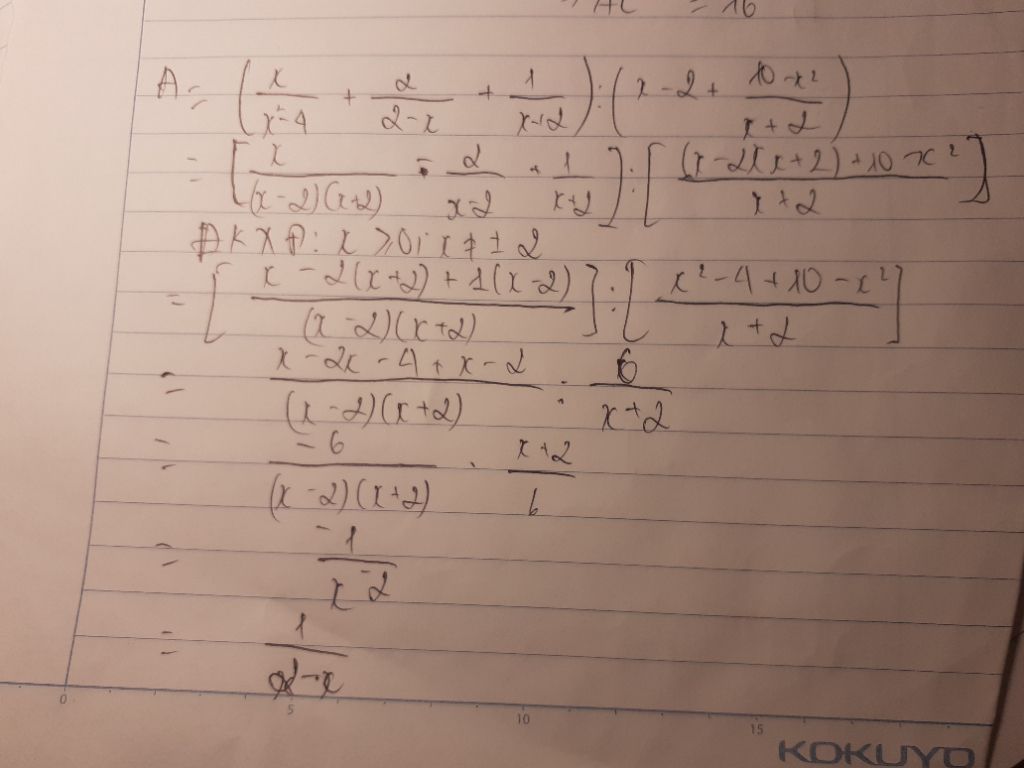 AC = 16
A = (x/(x²-4) + 2/(2-x) + 1/(x+2)) : (x-2 + (10-x²)/(x+2))
= [x/((x-2)(x+2)) - 2/(x-2) + 1/(x+2)] : [((x-2)(x+2)+10-x²)/(x+2)]
ĐKXĐ: x ≥ 0; x ≠ ± 2
= [(x-2(x+2)+1(x-2))/((x-2)(x+2))] : [(x²-4+10-x²)/(x+2)]
= (x-2x-4+x-2)/((x-2)(x+2)) : 6/(x+2)
= -6/((x-2)(x+2)) . (x+2)/6
= -1/(x-2)
= 1/(2-x)
0 5 10 15
KOKUYO